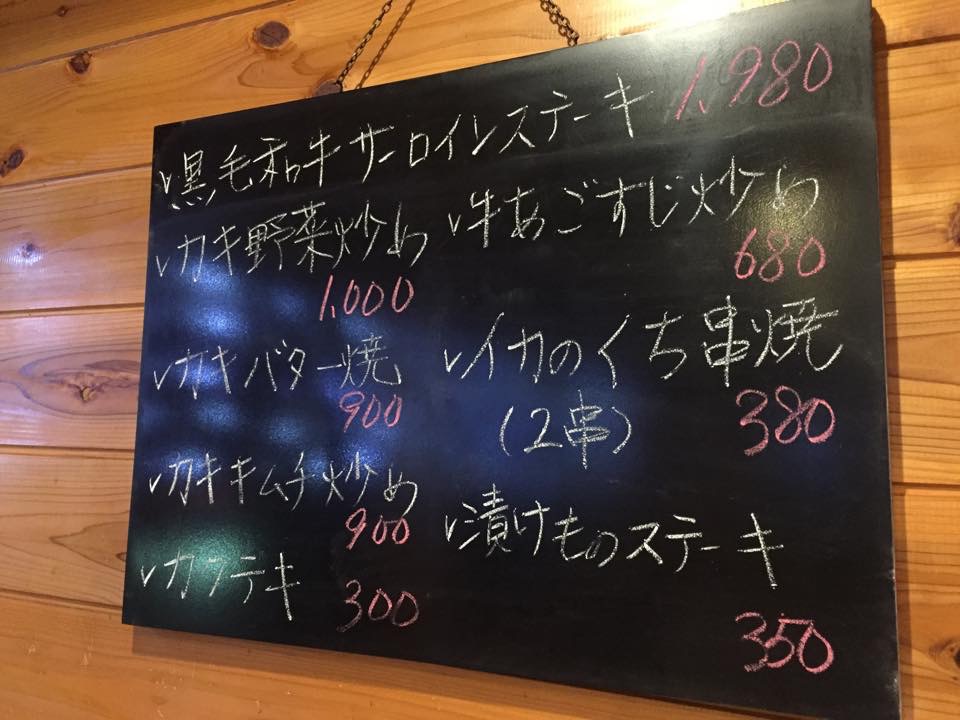 黒毛和牛サーロインステーキ 1,980
カキ野菜炒め
1,000
カキバター焼
900
カキキムチ炒め
900
カクテキ
300
牛あごすじ炒め
680
イカのくち串焼
(2串) 380
漬けものステーキ
350